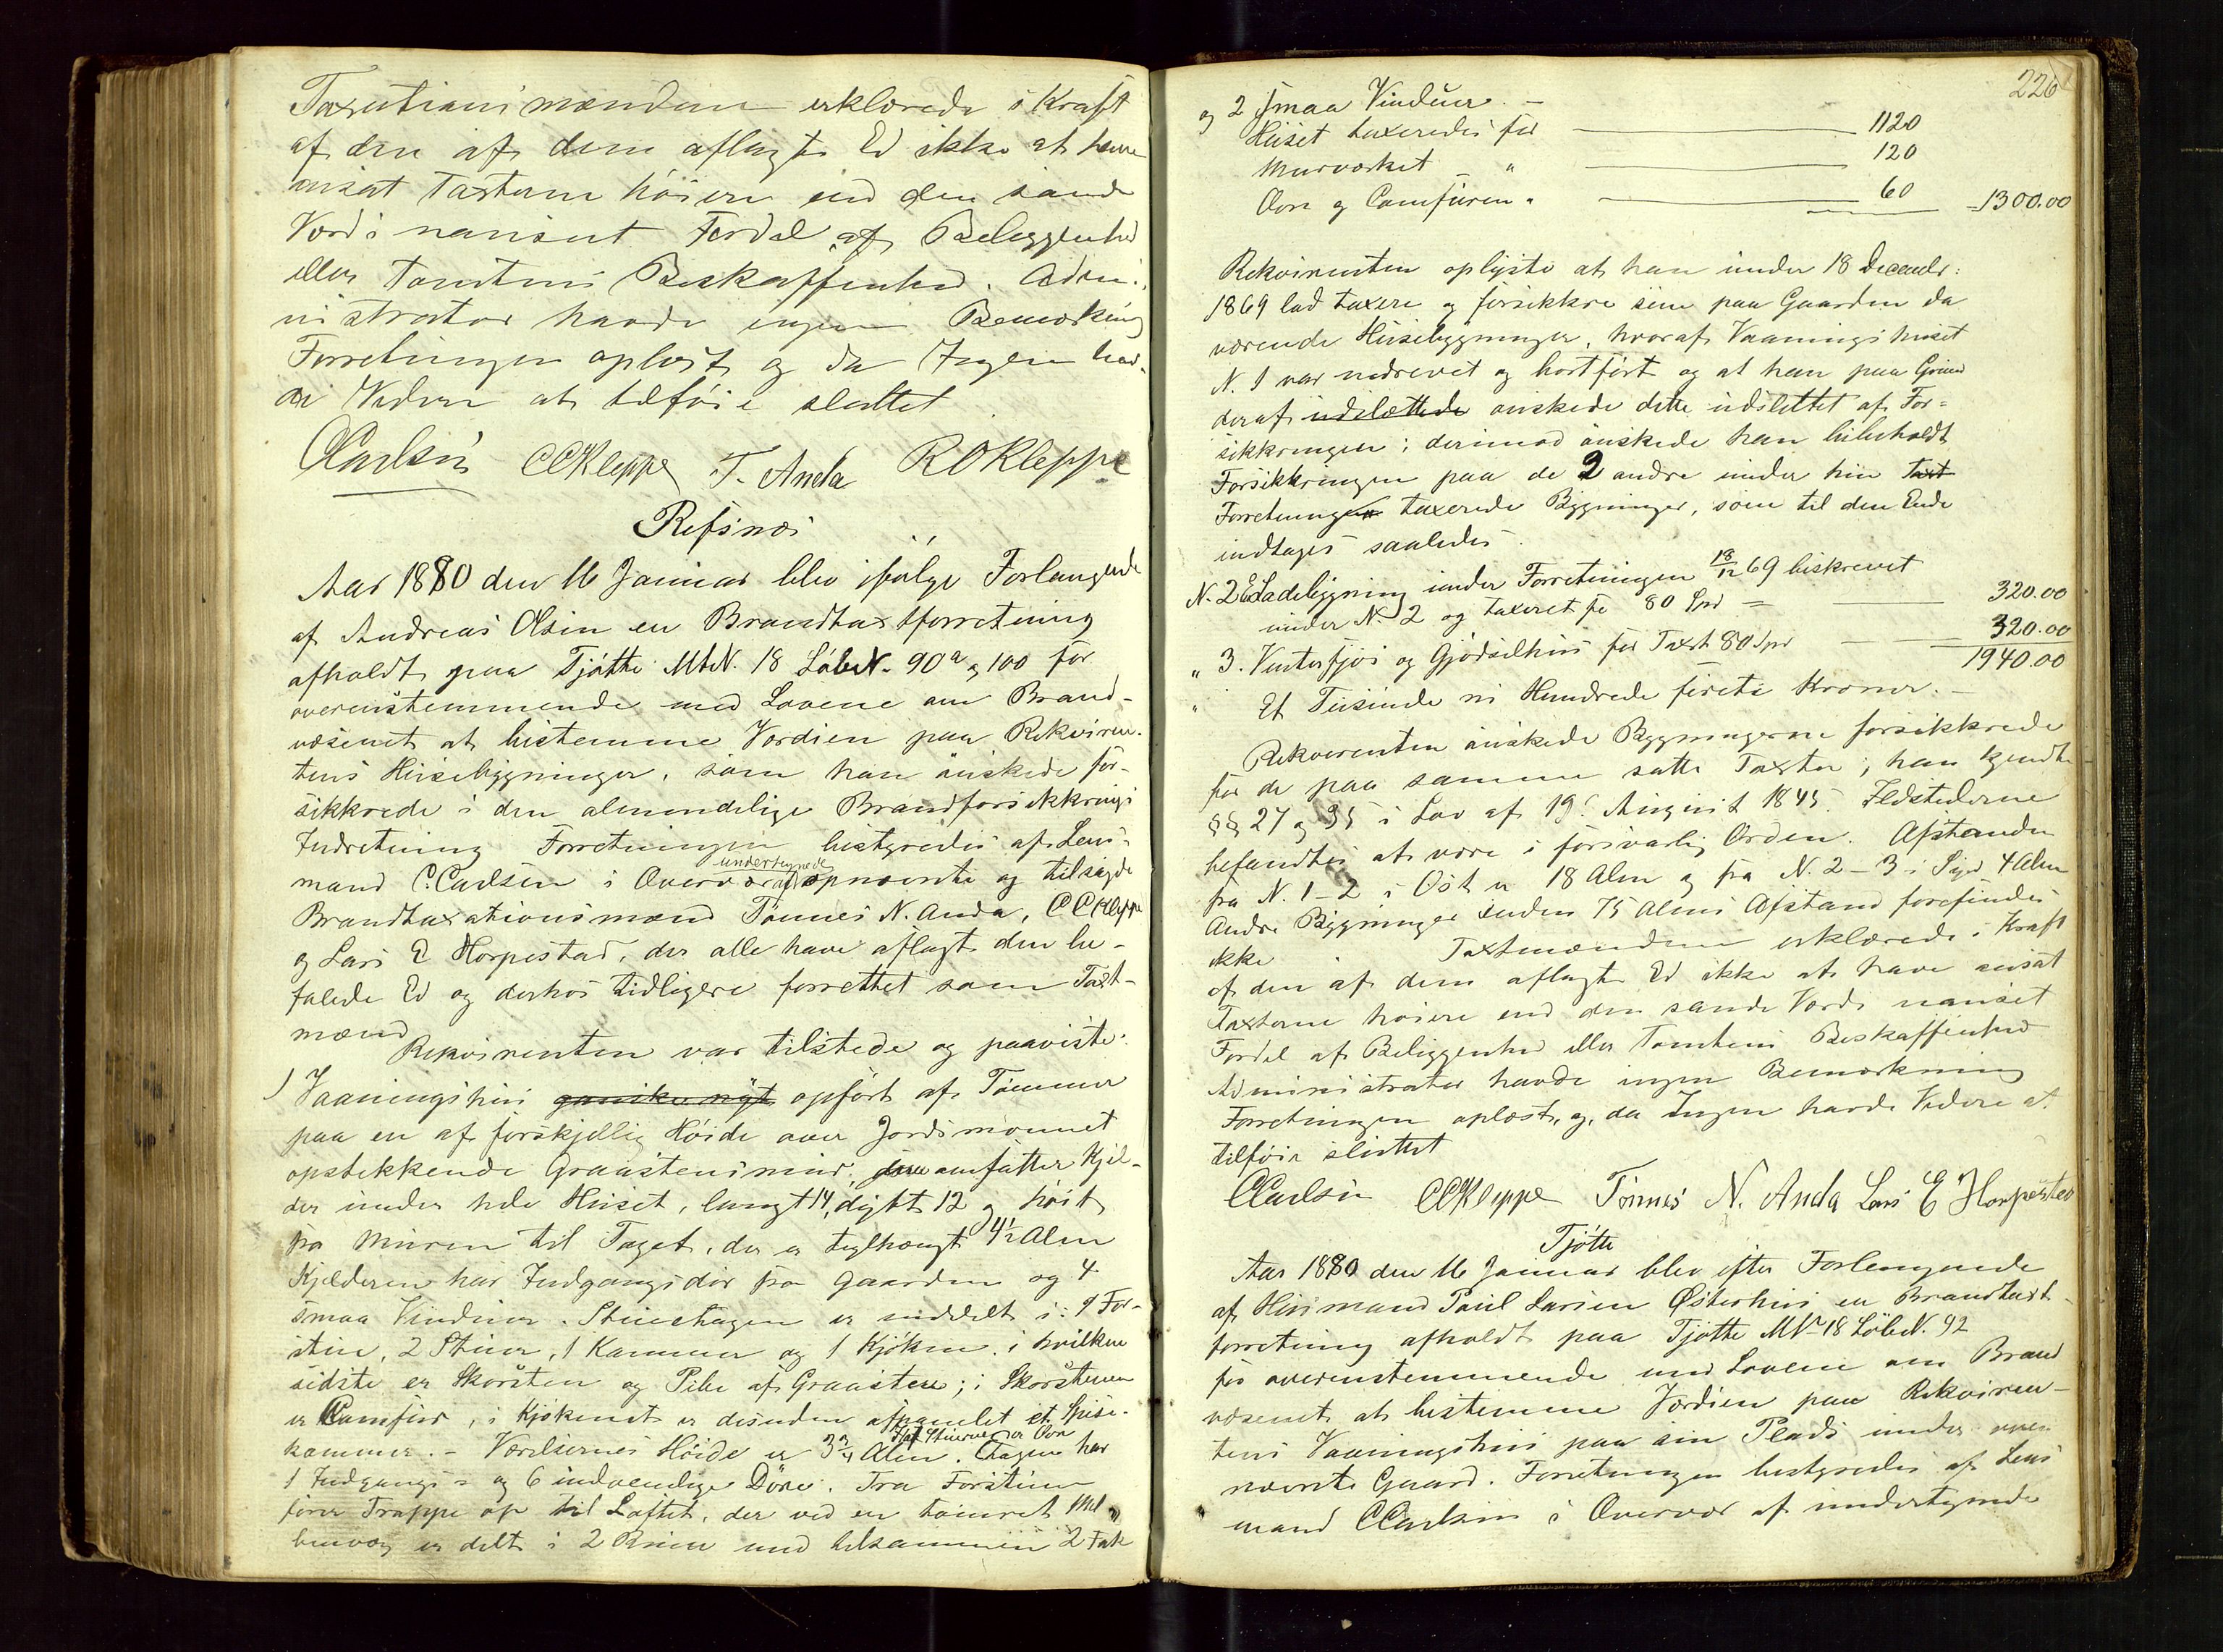 Taxationsmændene erklærede i Kraft
af den af dem aflagte Ed ikke at have
ansat Taxterne höiere end den sande
Værdi uanseet Fordel af Beliggenhed
eller Tomtens Beskaffenhed. Admi-
nistrator havde ingen Bemærkning
Forretningen oplæst og da Ingen hav-
de Videre at tilföie sluttet
CCarlsen CCKleppe T. Anda ROKleppe
Refsnæs
Aar 1880 den 16 Januar blev ifölge Forlangende
af Andreas Olsen en Brandtaxtforretning
afholdt paa Tjøtte MtN. 18 LöbeN. 90a og 100 for
overensstemmende med Lovene om Brand-
væsenet at bestemme Værdien paa Rekviren-
tens Husebygninger, som han önskede for-
sikkrede i den almindelige Brandforsikkrings
Indretning Forretningen bestyredes af Lens-
mand C. Carlsen i Overvær af undertegnede opnævnte og tilsagde
Brandtaxationsmænd Tönnes N. Anda, CCKleppe
og Lars E Horpestad, der alle have aflagt den be-
falede Ed og derhos tidligere forrettet som Taxt-
mænd
Rekvirenten var tilstede og paaviste:
1 Vaaningshus ganske nyt opfört af Tømmer
paa en af forskjellig Höide over Jordsmonnet
opstikkende Graastensmur, omfatter Kjel-
der under hele Huset, langt 14, dybt 12 og höit
fra Muren til Taget, der er teglhængt 4½ Alen
Kjelderen har Indgangsdör fra Gaarden og 4
smaa Vinduer. Stueetagen er inddelt i: 1 For-
stue, 2 Stuer, 1 Kammer og 1 Kjöken, i hvilken
sidste er Skorsten og Pibe af Graasten; i Skorstenen
er Comfur, i Kjökenet er desuden afpanelet et Spise-
kammer. - I 1 af Stuerne er Ovn
Værelsernes Höide er 3¾ Alen. Etagen har
1 Indgangs- og 6 indvendige Döre. Fra Forstuen
förer Trappe op til Loftet, der ved en tömret Mel-
lemvæg er delt i 2 Rum med tilsammen 2 Fak
226
og 2 smaa Vinduer. -
Huset taxeredes for 1120
Murværket " 120
Ovn og Comfuren " 60 1300.00
Rekvirenten oplyste at han under 18 Decembr:
1869 lod taxere og forsikkre sine paa Gaarden da
værende Husebygninger, hvoraf Vaaningshuset
N. 1 var nedrevet og bortfört og at han paa Grund
deraf udslættede önskede dette udslettet af For-
sikkringen; derimod önskede han bibeholdt
Forsikkringen paa de 2 andre under hin Taxt
Forretningen taxerede Bygninger, som til den Ende
indtages saaledes.
N. 2 Ladebygning under Forretningen 18/12 69 beskrevet
under N. 2 og taxeret for 80 Spd = 320.00
" 3. Vinterfjøs og Gjödselhus for Taxt 80 Spd 320.00
1940.00
" Et Tusinde ni Hundrede fireti Kroner. -
Rekvirenten önskede Bygningerne forsikkrede
for de paa samme satte Taxter; han kjendte
§§ 27 og 35 i Lov af 19. August 1845. Ildstederne
befandtes at være i forsvarlig Orden. Afstanden
fra N. 1 - 2 i Öst er 18 Alen og fra N. 2 - 3 i Syd 4 Alen
Andre Bygninger inden 75 Alens Afstand forefindes
ikke Taxtmændene erklærede i Kraft
af den af dem aflagte Ed ikke at have ansat
Taxterne höiere end den sande Værdi uanseet
Fordel af Beliggenhed eller Tomtens Beskaffenhed
Administrator havde ingen Bemærkning
Forretningen oplæst, og, da Ingen havde Videre at
tilföie sluttet
CCarlsen CCKleppe Tönnes N. Anda Lars E Horpestad
Tjötte
Aar 1880 den 16 Januar blev efter Forlangende
af Husmand Paul Larsen Østerhus en Brandtaxt-
forretning afholdt paa Tjötte MN 18 LöbeN. 92
for overenstemmende med Lovene om Brand
væsenet at bestemme Værdien paa Rekviren-
tens Vaaningshus paa sin Plads under oven
nævnte Gaard. Forretningen bestyredes af Lens
mand CCarlsen i Overvær af undertegnede